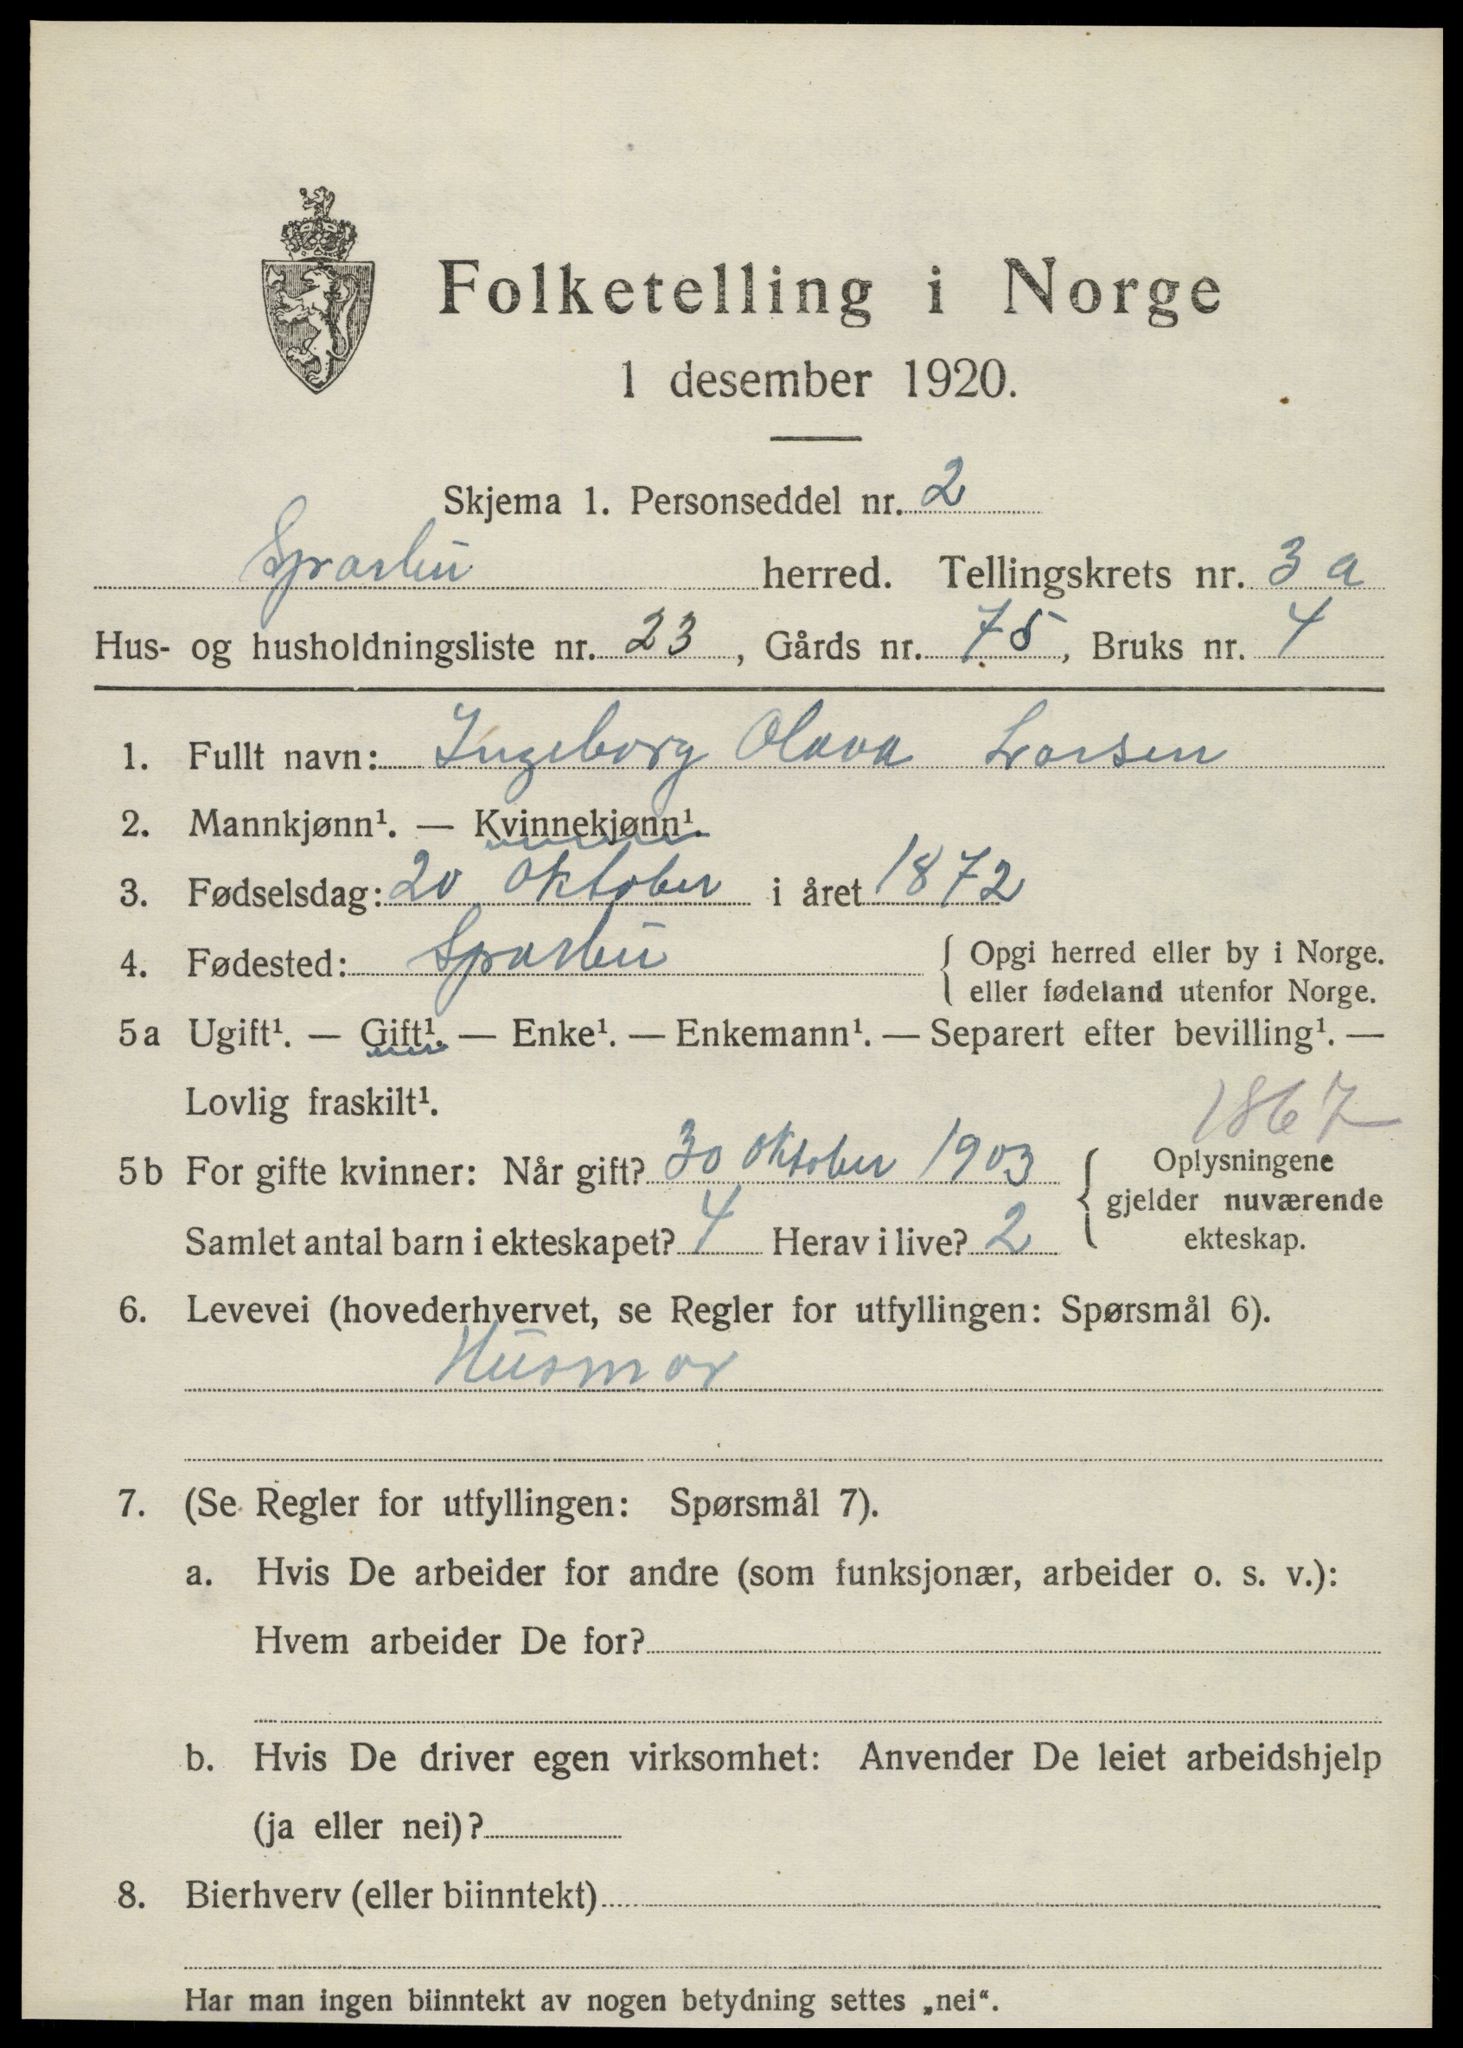 Folketelling i Norge
1 desember 1920.
Skjema 1. Personseddel nr. 2
Sparbu herred. Tellingskrets nr. 3 a
Hus- og husholdningsliste nr. 23, Gårds nr. 75, Bruks nr. 4
1. Fullt navn: Ingeborg Olava Larsen
2. Mannkjønn¹. — Kvinnekjønn¹.
3. Fødselsdag: 20 oktober i året 1872
4. Fødested: Sparbu { Opgi herred eller by i Norge.
eller fødeland utenfor Norge.
5a Ugift¹. — Gift¹. — Enke¹. — Enkemann¹. — Separert efter bevilling¹. —
Lovlig fraskilt¹.
1867
5b For gifte kvinner: Når gift? 30 oktober 1903 { Oplysningene
gjelder nuværende
Samlet antal barn i ekteskapet? 4 Herav i live? 2 ekteskap.
6. Levevei (hovederhvervet, se Regler for utfyllingen: Spørsmål 6).
Husmor
7. (Se Regler for utfyllingen: Spørsmål 7).
a. Hvis De arbeider for andre (som funksjonær, arbeider o. s. v.):
Hvem arbeider De for?
b. Hvis De driver egen virksomhet: Anvender De leiet arbeidshjelp
(ja eller nei)?
8. Bierhverv (eller biinntekt)
Har man ingen biinntekt av nogen betydning settes „nei“.